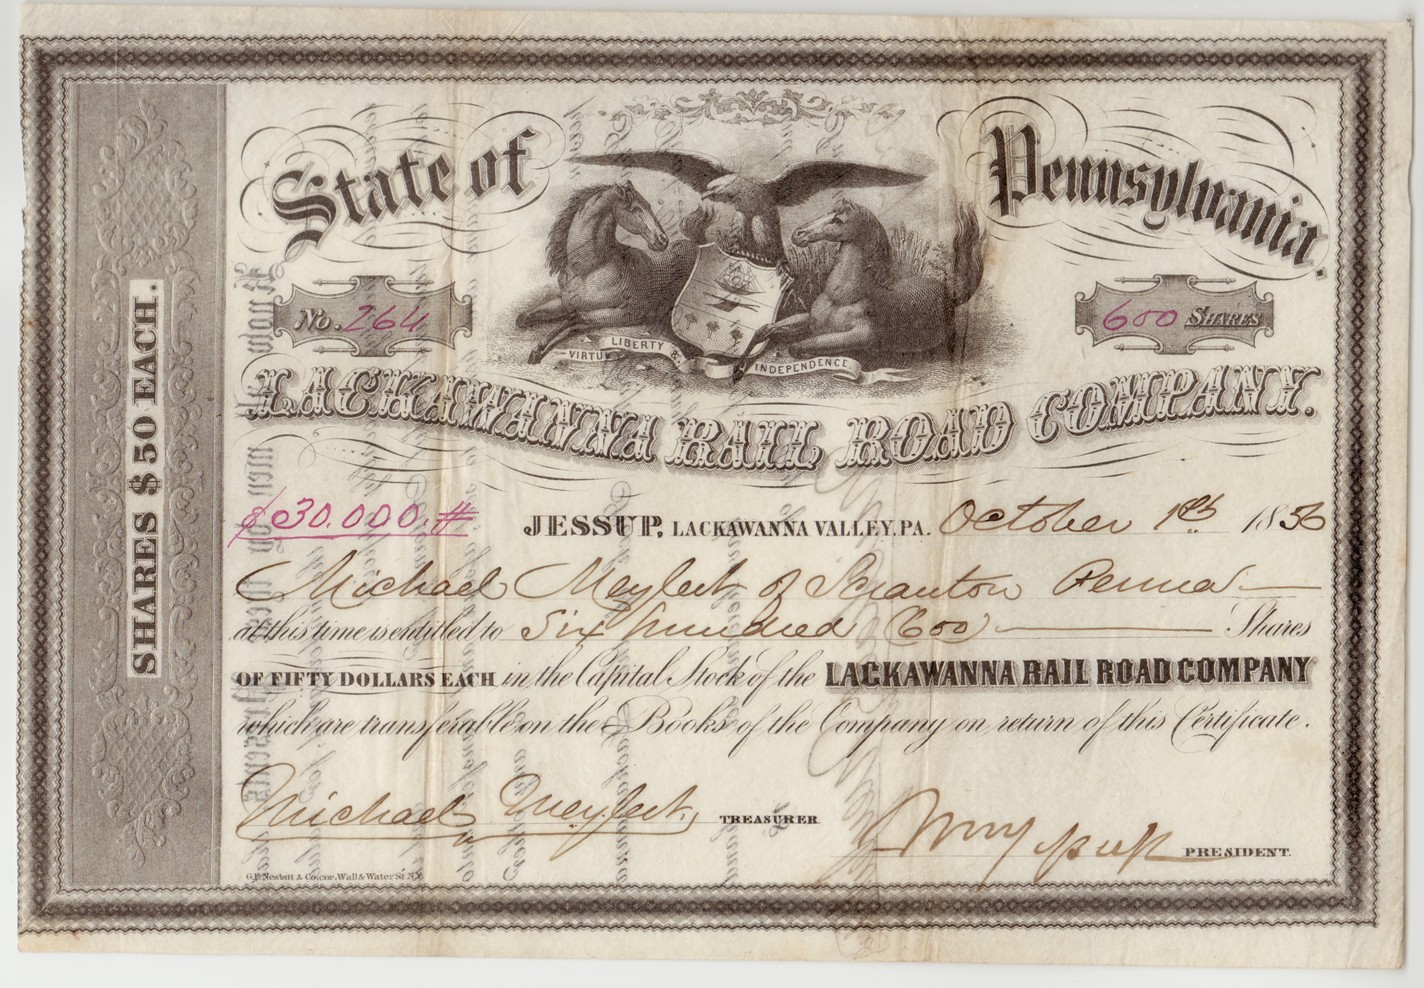 State of Pennsylvania.
No. 264
600 SHARES
VIRTUE LIBERTY & INDEPENDENCE
LACKAWANNA RAIL ROAD COMPANY.
SHARES $50 EACH.
$30.000.#
JESSUP, LACKAWANNA VALLEY, PA. October 1st 1856
Michael Meylert of Scranton Penna
at this time is entitled to Six hundred (600) Shares
OF FIFTY DOLLARS EACH in the Capital Stock of the LACKAWANNA RAIL ROAD COMPANY
which are transferable on the Books of the Company on return of this Certificate.
Michael Meylert, TREASURER
Jessup PRESIDENT.
G.F. Nesbitt & Co. cor. Wall & Water St N.Y.